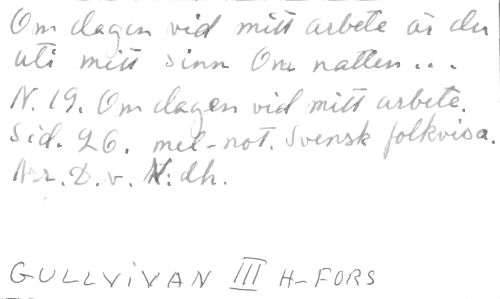 Om dagen vid mitt arbete är du
uti mitt sinn Om natten...
N. 19. Om dagen vid mitt arbete.
Sid. 26. mel-not. Svensk folkvisa.
Arr. D. v. H:dh.
GULLVIVAN III H-FORS